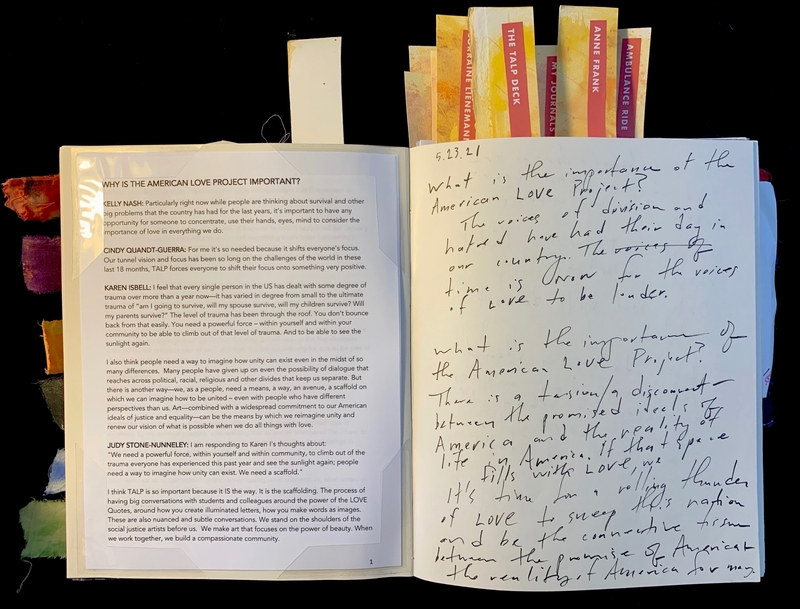 LORRAINE LIENEMAN
THE TALP DECK
MY JOURNALS
ANNE FRANK
AMBULANCE RIDE
WHY IS THE AMERICAN LOVE PROJECT IMPORTANT?
KELLY NASH: Particularly right now while people are thinking about survival and other
big problems that the country has had for the last years, it's important to have any
opportunity for someone to concentrate, use their hands, eyes, mind to consider the
importance of love in everything we do.
CINDY QUANDT-GUERRA: For me it's so needed because it shifts everyone's focus.
Our tunnel vision and focus has been so long on the challenges of the world in these
last 18 months, TALP forces everyone to shift their focus onto something very positive.
KAREN ISBELL: I feel that every single person in the US has dealt with some degree of
trauma over more than a year now—it has varied in degree from small to the ultimate
trauma of "am I going to survive, will my spouse survive, will my children survive? Will
my parents survive?" The level of trauma has been through the roof. You don't bounce
back from that easily. You need a powerful force – within yourself and within your
community to be able to climb out of that level of trauma. And to be able to see the
sunlight again.
I also think people need a way to imagine how unity can exist even in the midst of so
many differences. Many people have given up on even the possibility of dialogue that
reaches across political, racial, religious and other divides that keep us separate. But
there is another way—we, as a people, need a means, a way, an avenue, a scaffold on
which we can imagine how to be united – even with people who have different
perspectives than us. Art—combined with a widespread commitment to our American
ideals of justice and equality—can be the means by which we reimagine unity and
renew our vision of what is possible when we do all things with love.
JUDY STONE-NUNNELEY: I am responding to Karen I's thoughts about:
"We need a powerful force, within yourself and within community, to climb out of the
trauma everyone has experienced this past year and see the sunlight again; people
need a way to imagine how unity can exist. We need a scaffold."
I think TALP is so important because it IS the way. It is the scaffolding. The process of
having big conversations with students and colleagues around the power of the LOVE
Quotes, around how you create illuminated letters, how you make words as images.
These are also nuanced and subtle conversations. We stand on the shoulders of the
social justice artists before us. We make art that focuses on the power of beauty. When
we work together, we build a compassionate community.
1
5.23.21
What is the importance of the
American Love Project?
The voices of division and
hatred have had their day in
our country. The voices of
time is now for the voices
of Love to be louder.
What is the importance of
the American Love Project?
There is a tension, a disconnect
between the promised ideals of
America and the reality of
life in America. If that space
fills with Love, we
It's time for a rolling thunder
of Love to sweep this nation
and be the connective tissue
between the promise of America &
the reality of America for many.